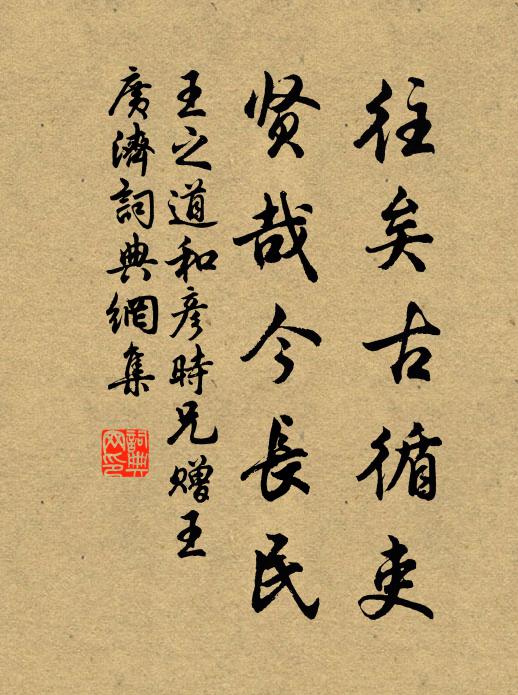 往矣古循吏
贤哉今長民
王之道和彦時兄赠王
廣濟詞典網集
詞典網印